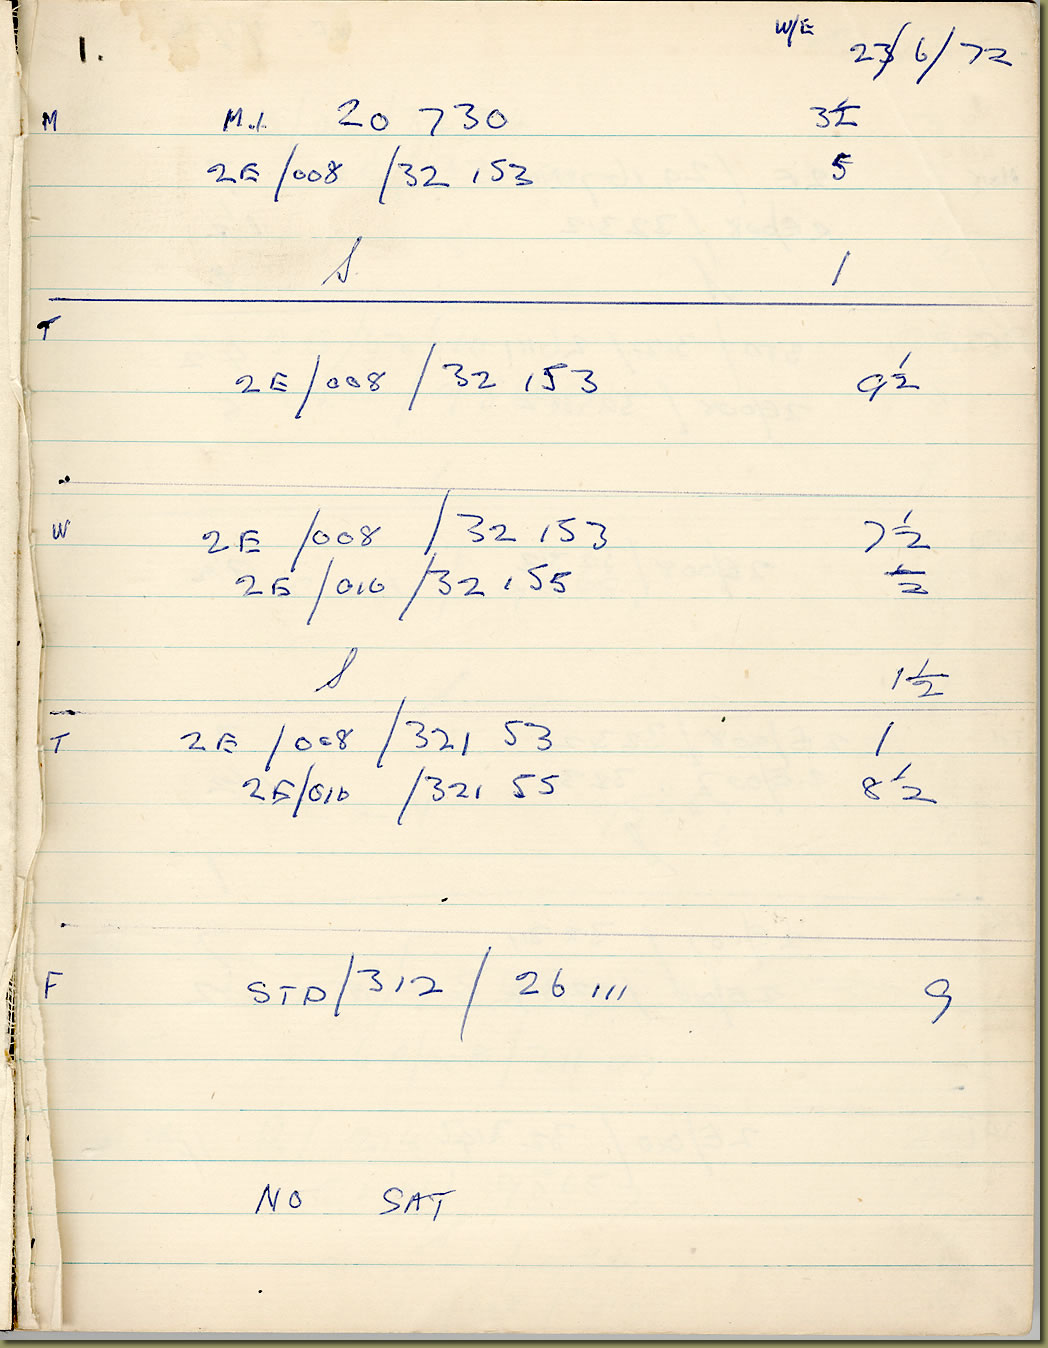 1. W/E 23/6/72
M M.I. 20 730 3½
2E/008 /32 153 5
S 1
T
2E/008 /32 153 9½
W 2E /008 /32 153 7½
2E /010 /32 155 ½
S 1½
T 2E /008 /321 53 1
2E/010 /321 55 8½
F STD/312 / 26 111 9
NO SAT